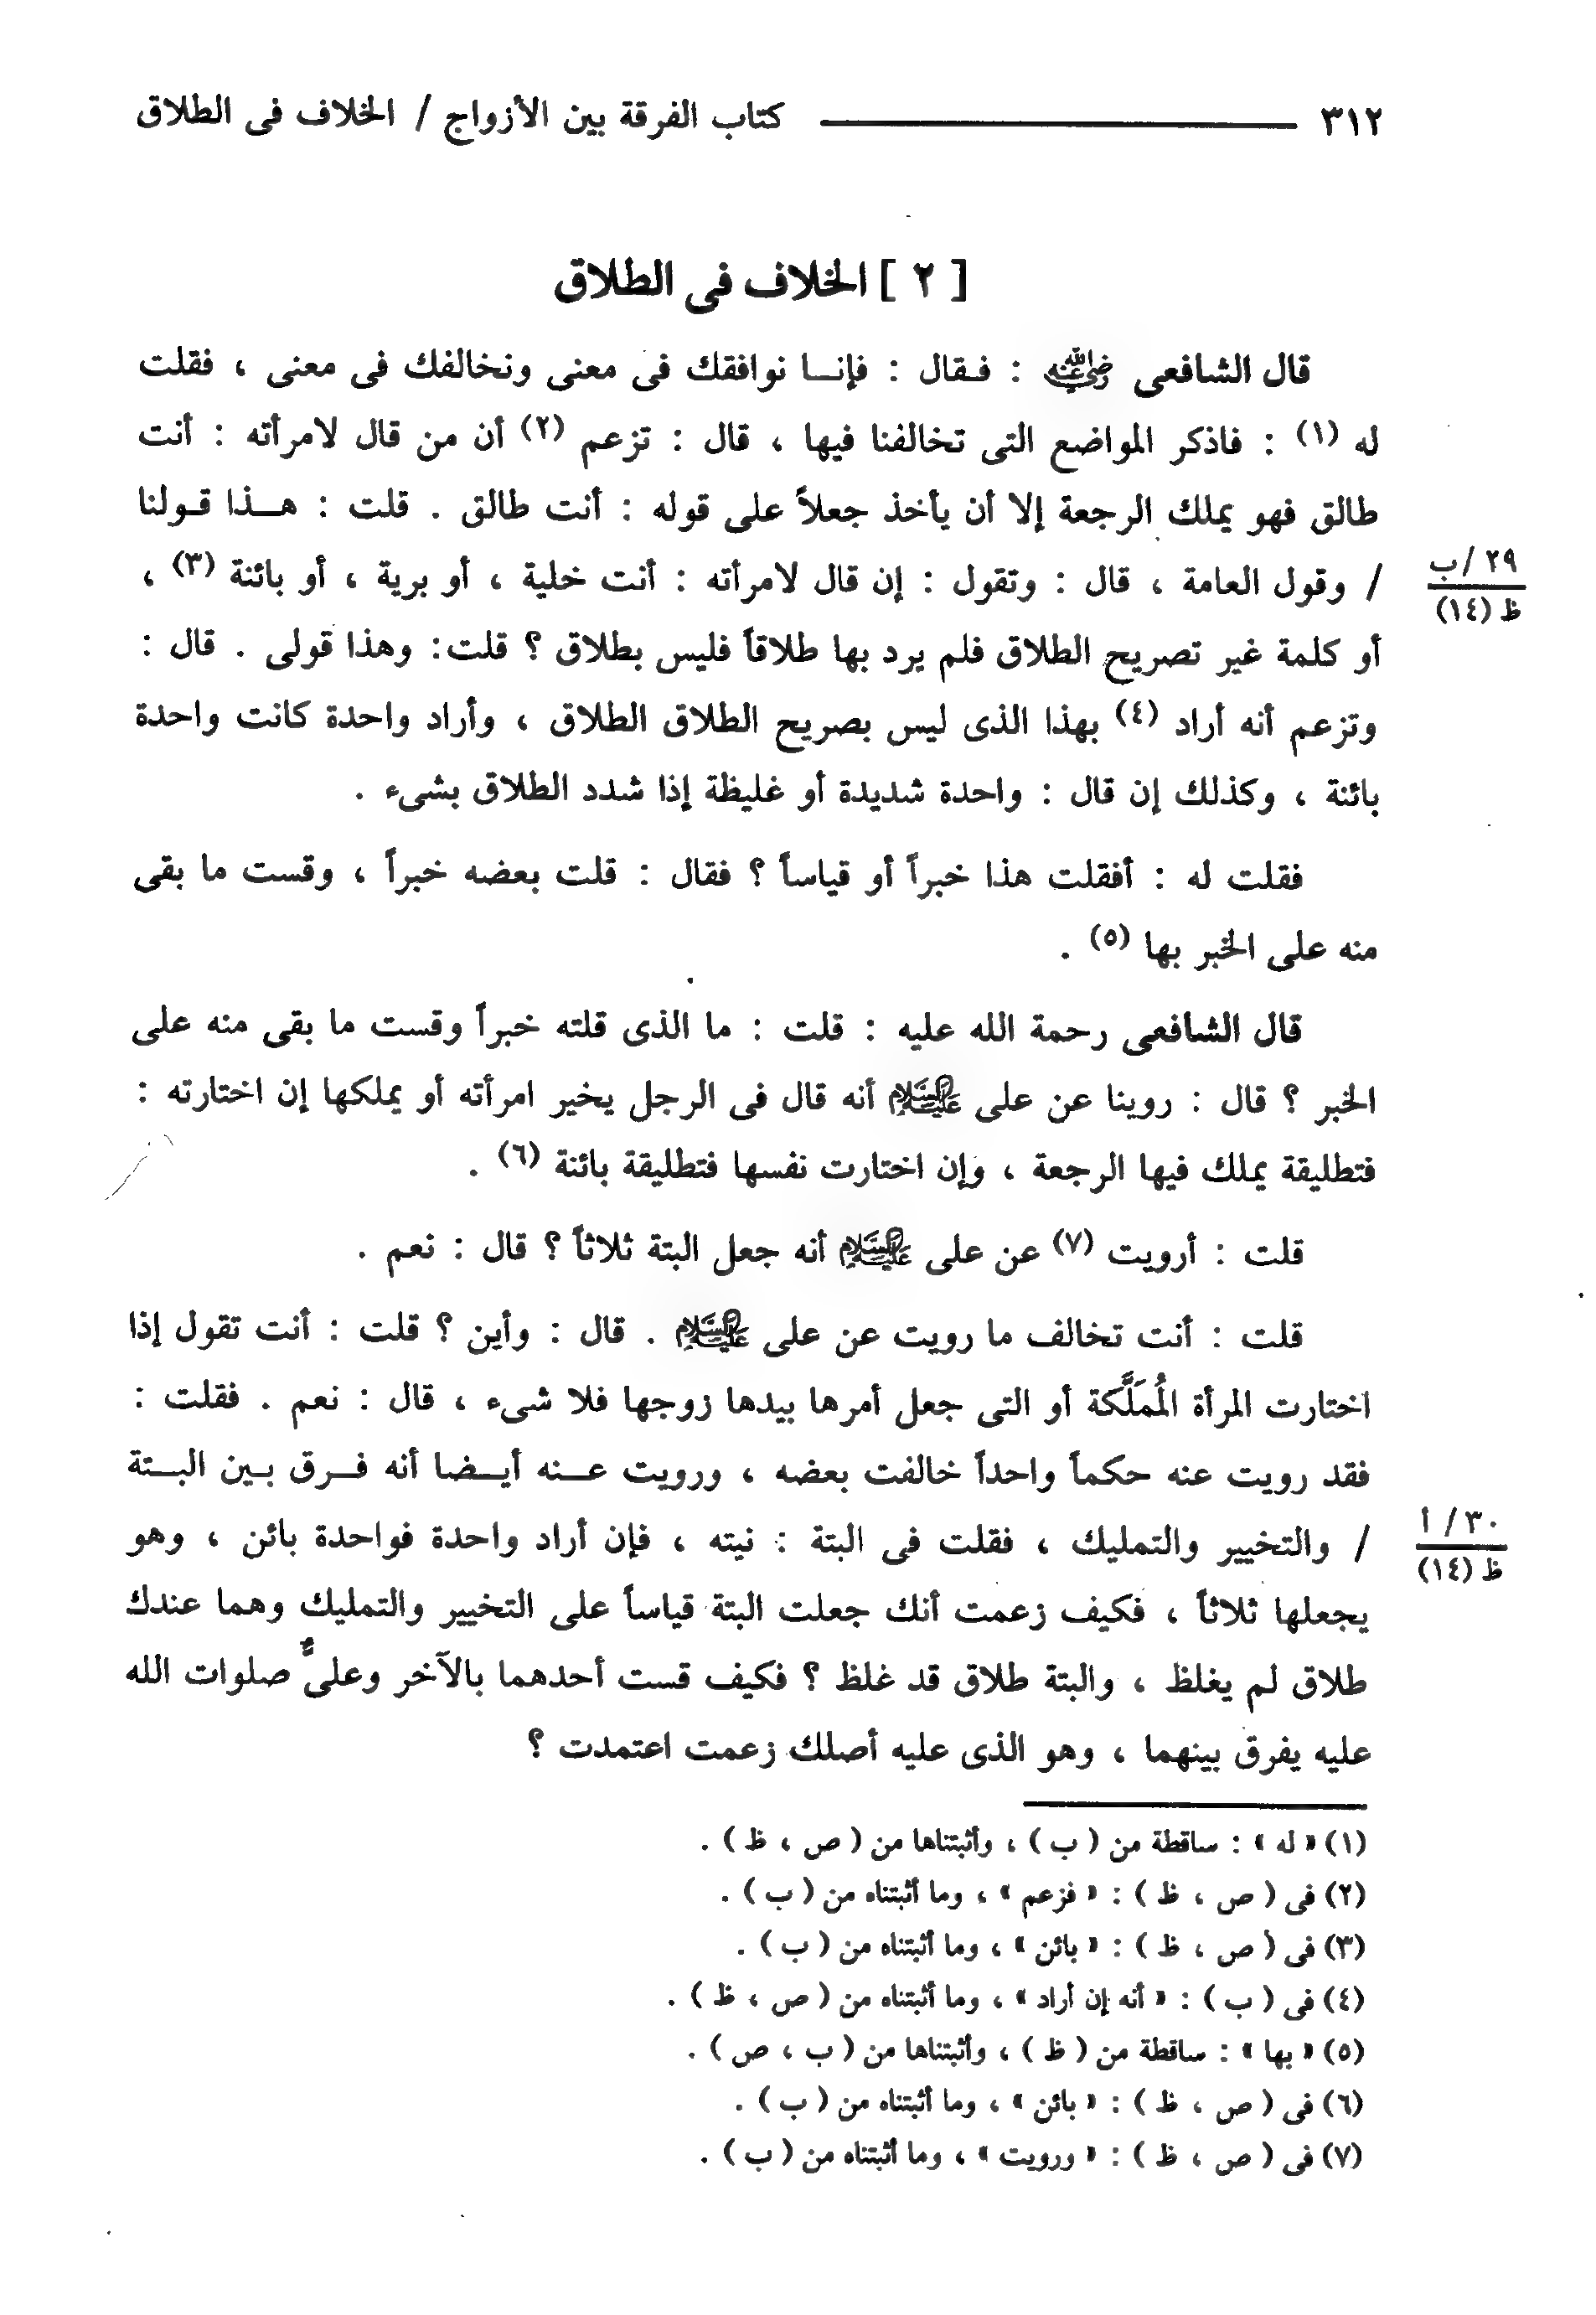 ٣١٢ كتاب الفرقة بين الأزواج / الخلاف فى الطلاق
[ ٢ ] الخلاف فى الطلاق
قال الشافعى رضي الله عنه : فقال : فإنا نوافقك فى معنى ونخالفك فى معنى ، فقلت
له (١) : فاذكر المواضع التى تخالفنا فيها ، قال : تزعم (٢) أن من قال لامرأته : أنت
طالق فهو يملك الرجعة إلا أن يأخذ جعلاً على قوله : أنت طالق . قلت : هذا قولنا
٢٩ /ب
ظ (١٤)
/ وقول العامة ، قال : وتقول : إن قال لامرأته : أنت خلية ، أو برية ، أو بائنة (٣) ،
أو كلمة غير تصريح الطلاق فلم يرد بها طلاقاً فليس بطلاق ؟ قلت: وهذا قولى . قال :
وتزعم أنه أراد (٤) بهذا الذى ليس بصريح الطلاق الطلاق ، وأراد واحدة كانت واحدة
بائنة ، وكذلك إن قال : واحدة شديدة أو غليظة إذا شدد الطلاق بشىء .
فقلت له : أفقلت هذا خبراً أو قياساً ؟ فقال : قلت بعضه خبراً ، وقست ما بقى
منه على الخبر بها (٥) .
قال الشافعى رحمة الله عليه : قلت : ما الذى قلته خبراً وقست ما بقى منه على
الخبر ؟ قال : روينا عن على عليه السلام أنه قال فى الرجل يخير امرأته أو يملكها إن اختارته :
فتطليقة يملك فيها الرجعة ، وإن اختارت نفسها فتطليقة بائنة (٦) .
قلت : أرويت (٧) عن على عليه السلام أنه جعل البتة ثلاثاً ؟ قال : نعم .
قلت : أنت تخالف ما رويت عن على عليه السلام . قال : وأين ؟ قلت : أنت تقول إذا
اختارت المرأة المُمَلَّكة أو التى جعل أمرها بيدها زوجها فلا شىء ، قال : نعم . فقلت :
فقد رويت عنه حكماً واحداً خالفت بعضه ، ورويت عنه أيضا أنه فرق بين البتة
٣٠ / أ
ظ (١٤)
/ والتخيير والتمليك ، فقلت فى البتة : نيته ، فإن أراد واحدة فواحدة بائن ، وهو
يجعلها ثلاثاً ، فكيف زعمت أنك جعلت البتة قياساً على التخيير والتمليك وهما عندك
طلاق لم يغلظ ، والبتة طلاق قد غلظ ؟ فكيف قست أحدهما بالآخر وعلىٌّ صلوات الله
عليه يفرق بينهما ، وهو الذى عليه أصلك زعمت اعتمدت ؟
(١) « له » : ساقطة من ( ب ) ، وأثبتناها من ( ص ، ظ ) .
(٢) فى ( ص ، ظ ) : « فزعم » ، وما أثبتناه من ( ب ) .
(٣) فى ( ص ، ظ ) : « بائن » ، وما أثبتناه من ( ب ) .
(٤) فى ( ب ) : « أنه إن أراد » ، وما أثبتناه من ( ص ، ظ ) .
(٥) « بها » : ساقطة من ( ظ ) ، وأثبتناها من ( ب ، ص ) .
(٦) فى ( ص ، ظ ) : « بائن » ، وما أثبتناه من ( ب ) .
(٧) فى ( ص ، ظ ) : « ورويت » ، وما أثبتناه من ( ب ) .